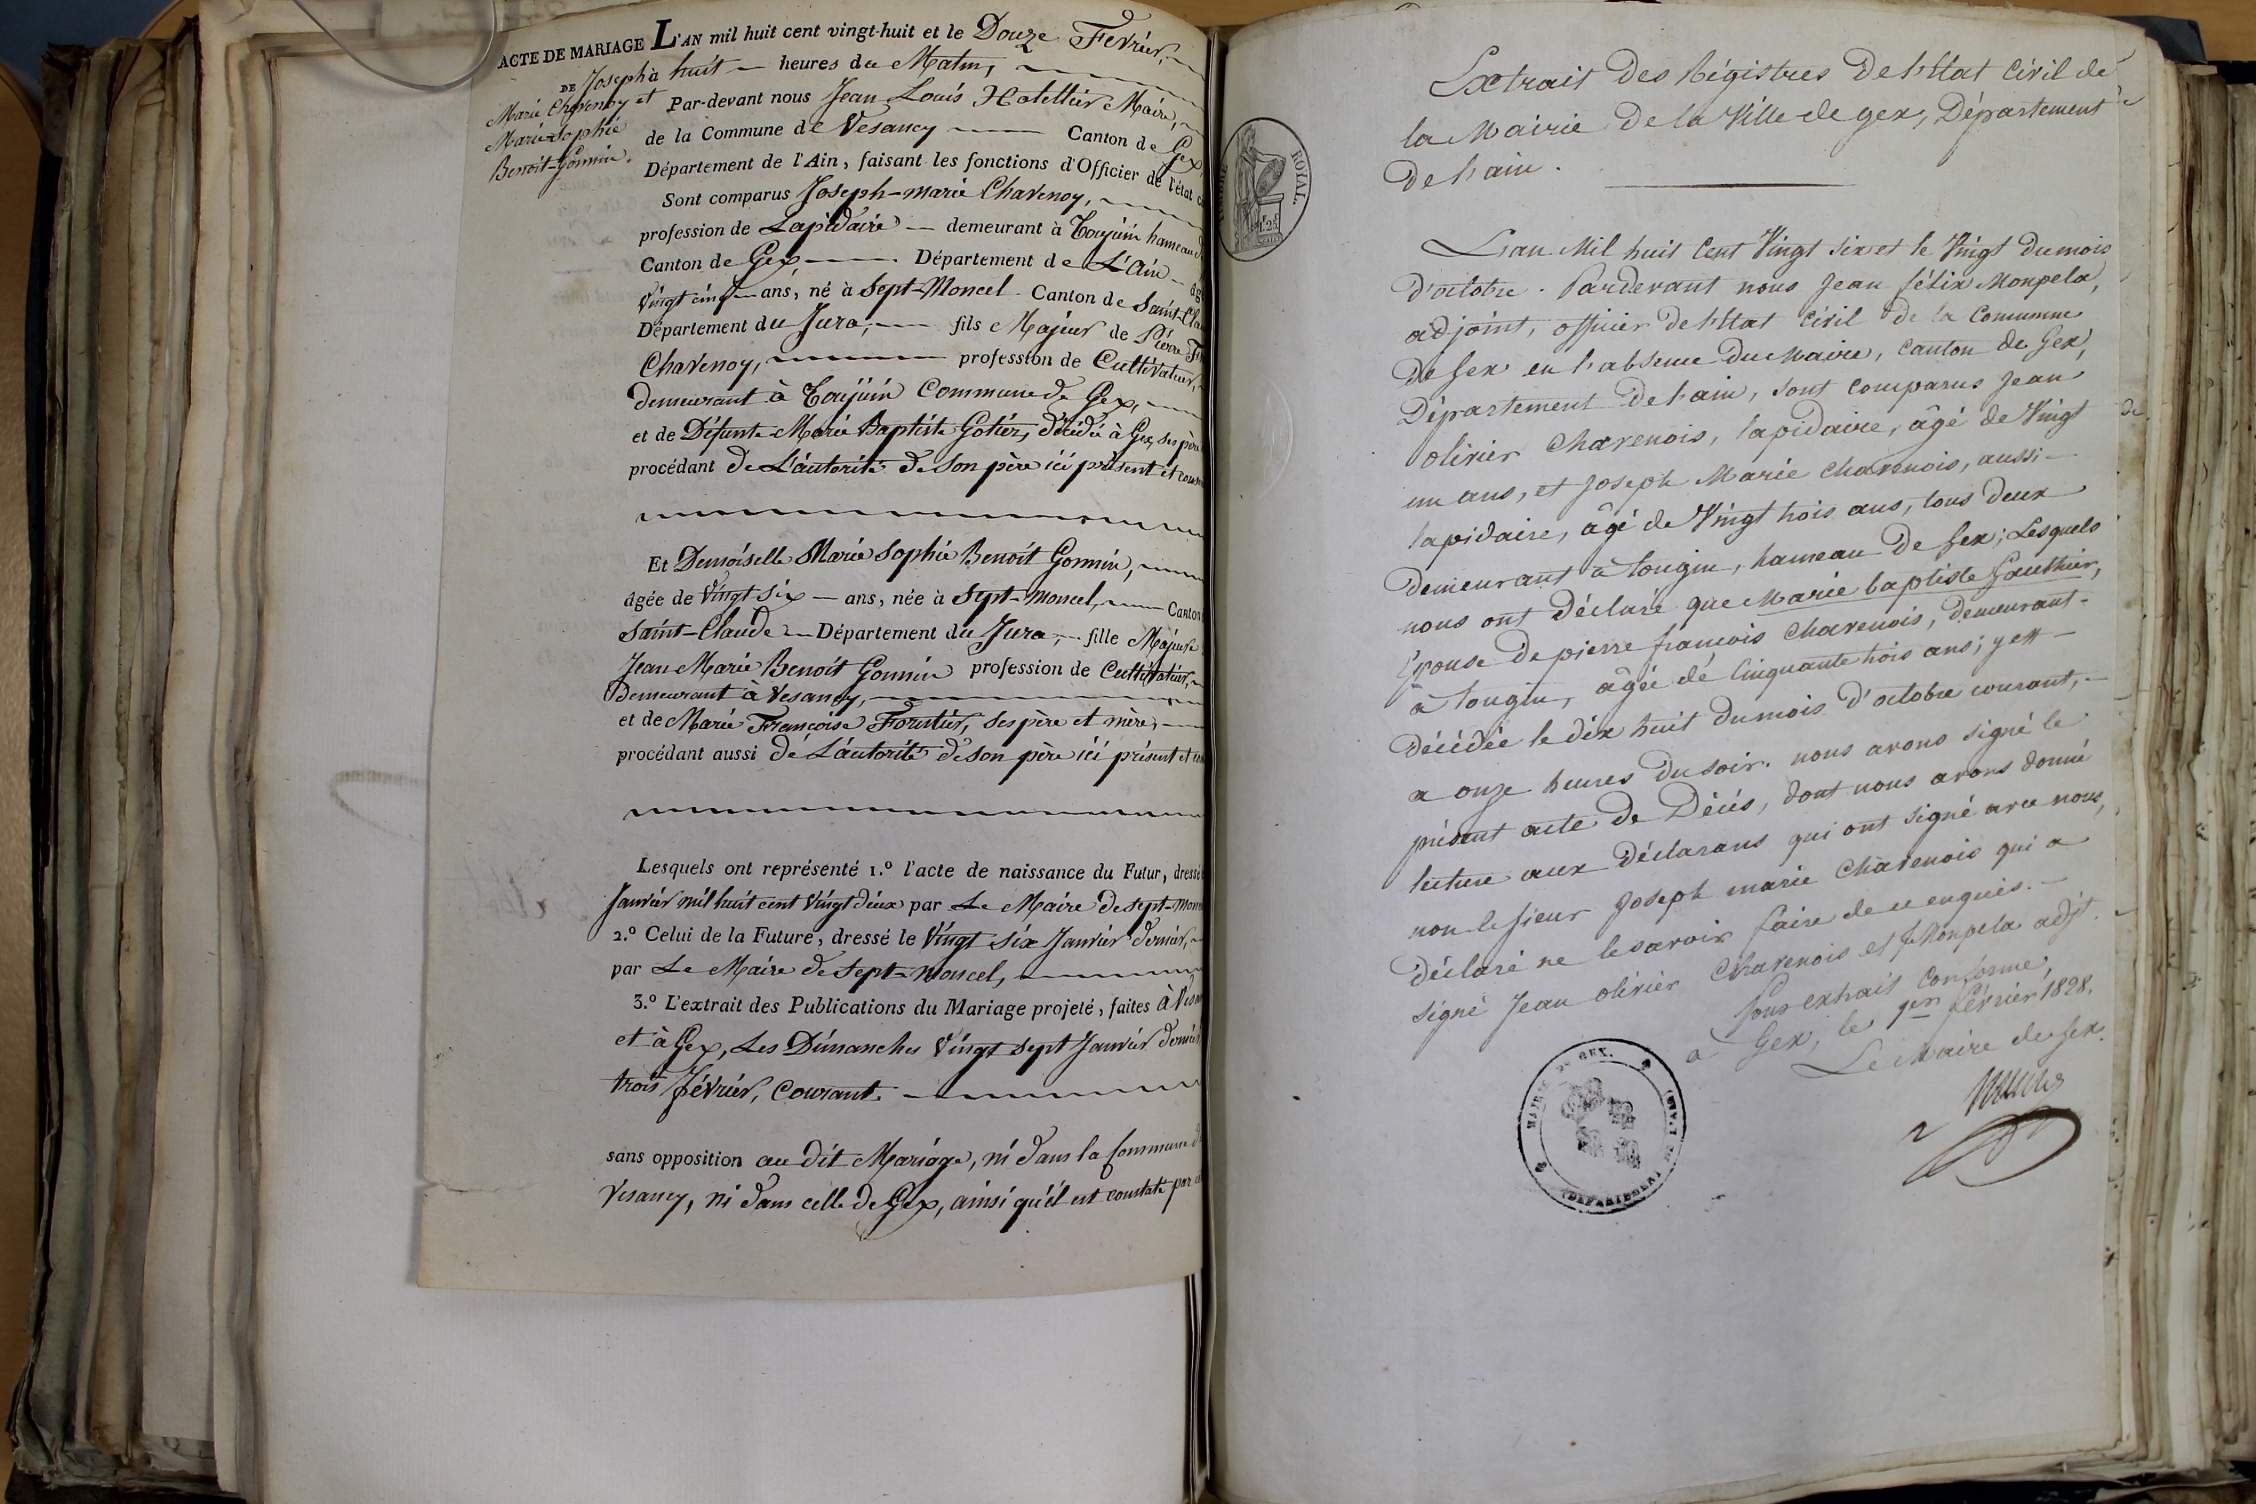 ACTE DE MARIAGE L'AN mil huit cent vingt-huit et le Douze Fevrier,
DE Joseph à huit — heures du Matin,
Marie Chavenoy et
Marie Sophie
Benoit-Gonnin.
Par-devant nous Jean Louis Hotellier Maire,
de la Commune de Vesancy —— Canton de Gex
Département de l'Ain, faisant les fonctions d'Officier de l'état
Sont comparus Joseph-marie Chavenoy,
profession de Lapidaire — demeurant à Toujuin hameau
Canton de Gex, —— Département de L'Ain
Vingt cinq — ans, né à Sept-Moncel. Canton de Saint-
Département du Jura, —— fils Majeur de Pierre
Chavenoy, —— profession de Cultivateur,
demeurant à Toujuin Commune de Gex,
et de Défunte Marie Baptiste Gotier, décédée à Gex, ses père
procédant de L'autorité de son père ici présent et
Et Demoiselle Marie Sophie Benoit Gonnin,
âgée de Vingt Six — ans, née à Sept-moncel, —— Canton
Saint-Claude — Département du Jura, — fille Majeure
Jean Marie Benoit Gonnin profession de Cultivateur,
demeurant à Vesancy,
et de Marie Françoise Forestier, ses père et mère,
procédant aussi de L'autorité de son père ici présent et
Lesquels ont représenté 1.º l'acte de naissance du Futur, dressé
Janvier mil huit cent Vingt deux par Le Maire de sept-
2.º Celui de la Future, dressé le Vingt Six Janvier dernier,
par Le Maire de Sept-moncel,
3.º L'extrait des Publications du Mariage projeté, faites à
et à Gex, Les Dimanches Vingt Sept Janvier dernier
trois février, Courant.
sans opposition au dit Mariage, ni dans la Commune
Vesancy, ni dans celle de Gex, ainsi qu'il est constaté par
ROYAL
Extrait des Régistres de l'Etat Civil de
la Mairie de la Ville de gex, Département
de l'ain.
L'an Mil huit Cent Vingt Six et le Vingt du mois
d'octobre. Pardevant nous Jean félix Monpela,
adjoint, officier de l'Etat Civil de la Commune
de Gex en l'absence du Maire, Canton de Gex,
Département de l'ain, sont comparus Jean
olivier Charenois, lapidaire, âgé de Vingt
un ans, et Joseph Marie Charenois, aussi
lapidaire, âgé de Vingt trois ans, tous deux
demeurant à tougin, hameau de Gex; Lesquels
nous ont déclaré que Marie baptiste Gauthier,
Epouse de pierre françois Charenois, demeurant
à tougin, âgée de Cinquante trois ans; y est
décédée le dix huit du mois d'octobre courant,
a onze heures du soir. nous avons signé le
présent acte de Décés, dont nous avons donné
lecture aux déclarans qui ont signé avec nous,
non le sieur Joseph marie Charenois qui a
déclaré ne le savoir faire de ce enquis.
signé Jean olivier Charenois et f. Monpela adjt.
Pour extrait Conforme,
à Gex, le 1er février 1828.
Le Maire de Gex.
MAIRIE DE GEX.